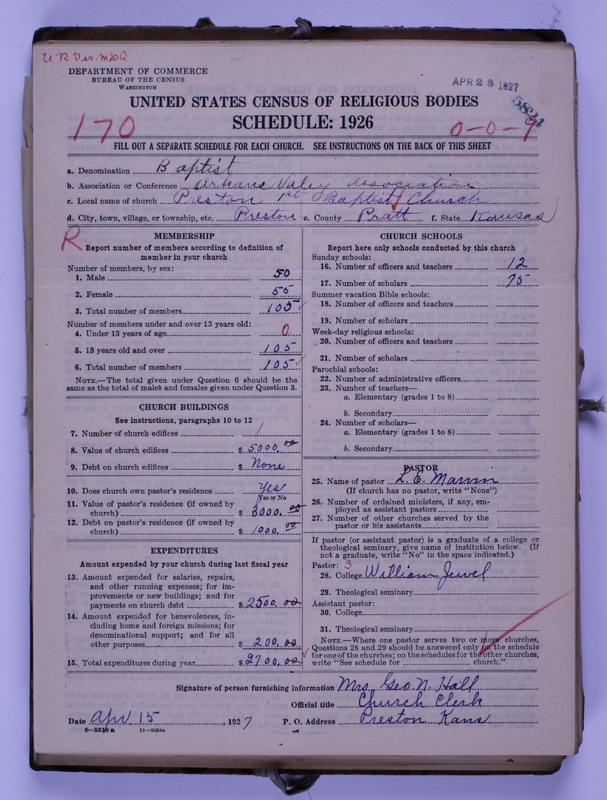 U R Ver. M20Q
DEPARTMENT OF COMMERCE
BUREAU OF THE CENSUS
WASHINGTON
APR 23 1927
UNITED STATES CENSUS OF RELIGIOUS BODIES
SCHEDULE: 1926
170
0-0-9
FILL OUT A SEPARATE SCHEDULE FOR EACH CHURCH. SEE INSTRUCTIONS ON THE BACK OF THIS SHEET
a. Denomination Baptist
b. Association or Conference Arkans Valey Association
c. Local name of church Preston 1st Baptist Church
d. City, town, village, or township, etc. Preston e. County Pratt f. State Kansas
R
MEMBERSHIP
Report number of members according to definition of
member in your church
Number of members, by sex:
1. Male 50
2. Female 55
3. Total number of members 105
Number of members under and over 13 years old:
4. Under 13 years of age 0
5. 13 years old and over 105
6. Total number of members 105
NOTE.—The total given under Question 6 should be the
same as the total of males and females given under Question 3.
CHURCH BUILDINGS
See instructions, paragraphs 10 to 12
7. Number of church edifices 1
8. Value of church edifices $ 5000.00
9. Debt on church edifices $ None
10. Does church own pastor's residence Yes
Yes or No
11. Value of pastor's residence (if owned by
church) $ 3000.00
12. Debt on pastor's residence (if owned by
church) $ 1000.00
EXPENDITURES
Amount expended by your church during last fiscal year
13. Amount expended for salaries, repairs,
and other running expenses; for im-
provements or new buildings; and for
payments on church debt $ 2500.00
14. Amount expended for benevolences, in-
cluding home and foreign missions; for
denominational support; and for all
other purposes $ 200.00
15. Total expenditures during year $ 2700.00
CHURCH SCHOOLS
Report here only schools conducted by this church
Sunday schools:
16. Number of officers and teachers 12
17. Number of scholars 75
Summer vacation Bible schools:
18. Number of officers and teachers
19. Number of scholars
Week-day religious schools:
20. Number of officers and teachers
21. Number of scholars
Parochial schools:
22. Number of administrative officers
23. Number of teachers—
a. Elementary (grades 1 to 8)
b. Secondary
24. Number of scholars—
a. Elementary (grades 1 to 8)
b. Secondary
PASTOR
25. Name of pastor L. E. Marvin
(If church has no pastor, write "None")
26. Number of ordained ministers, if any, em-
ployed as assistant pastors
27. Number of other churches served by the
pastor or his assistants
If pastor (or assistant pastor) is a graduate of a college or
theological seminary, give name of institution below. (If
not a graduate, write "No" in the space indicated.)
Pastor: 3
28. College William Jewel
29. Theological seminary
Assistant pastor:
30. College
31. Theological seminary
NOTE.—Where one pastor serves two or more churches,
Questions 28 and 29 should be answered only on the schedule
for one of the churches; on the schedules for the other churches,
write "See schedule for church."
Signature of person furnishing information Mrs. Geo. N. Hall
Official title Church Clerk
Date Apr. 15, 1927 P. O. Address Preston Kans
11—9084a